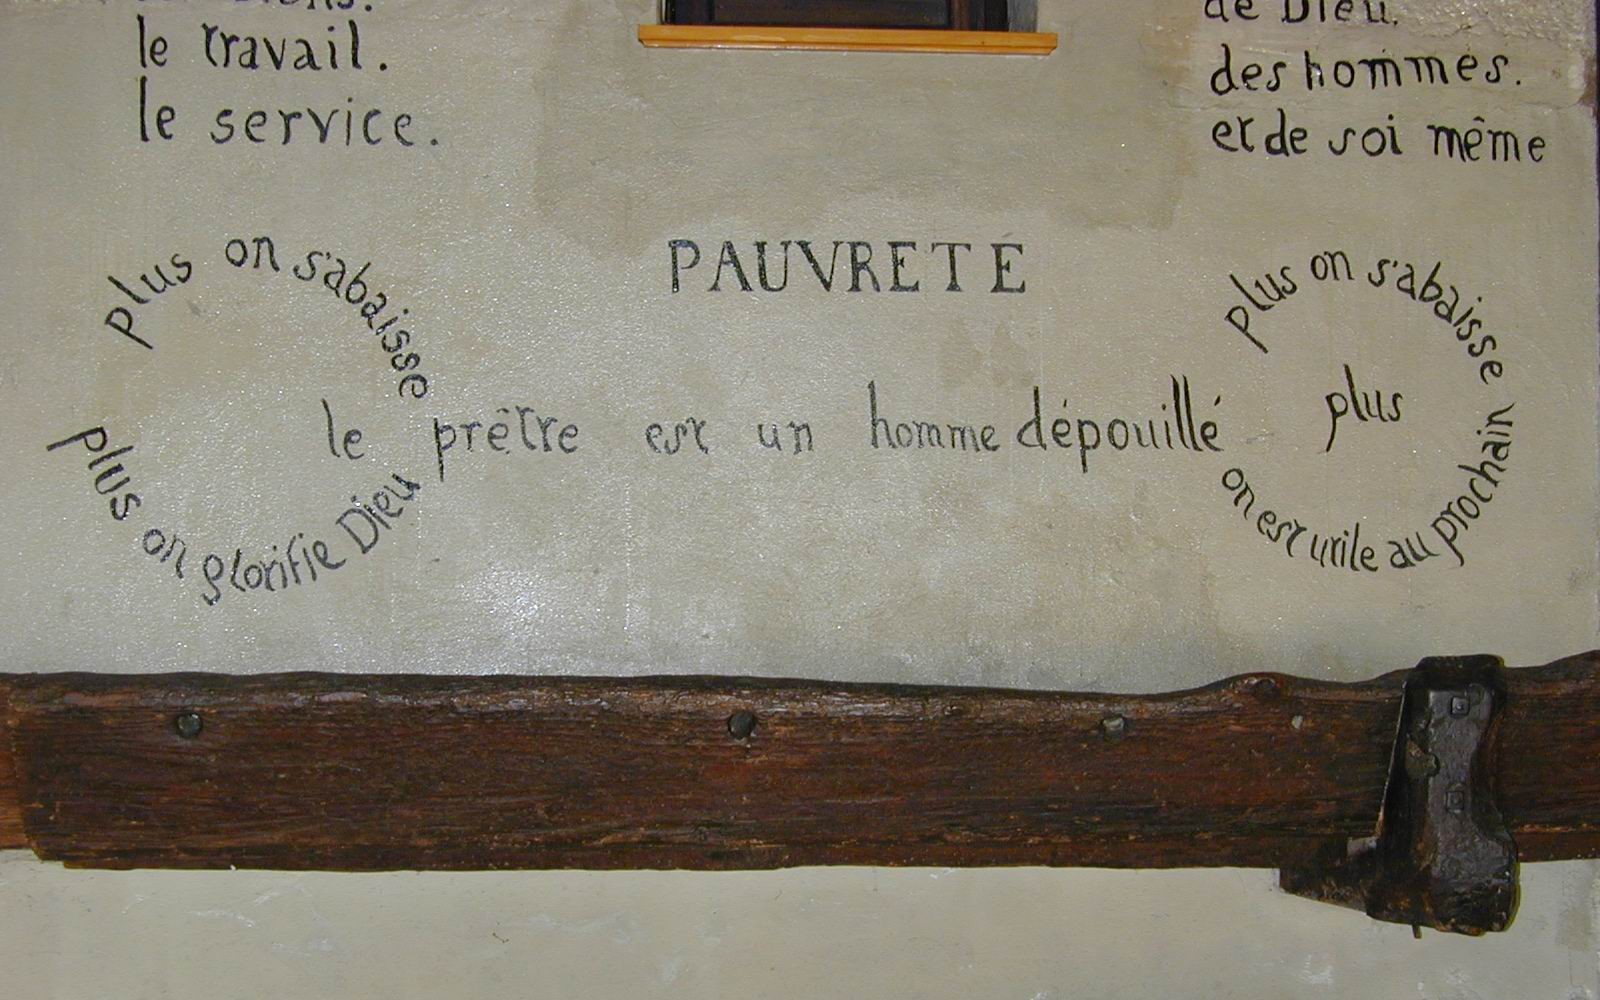 le travail.
le service.
de Dieu.
des hommes.
et de soi même
PAUVRETÉ
plus on s'abaisse
plus on glorifie Dieu
le prêtre est un homme dépouillé
plus on s'abaisse
plus
on est utile au prochain